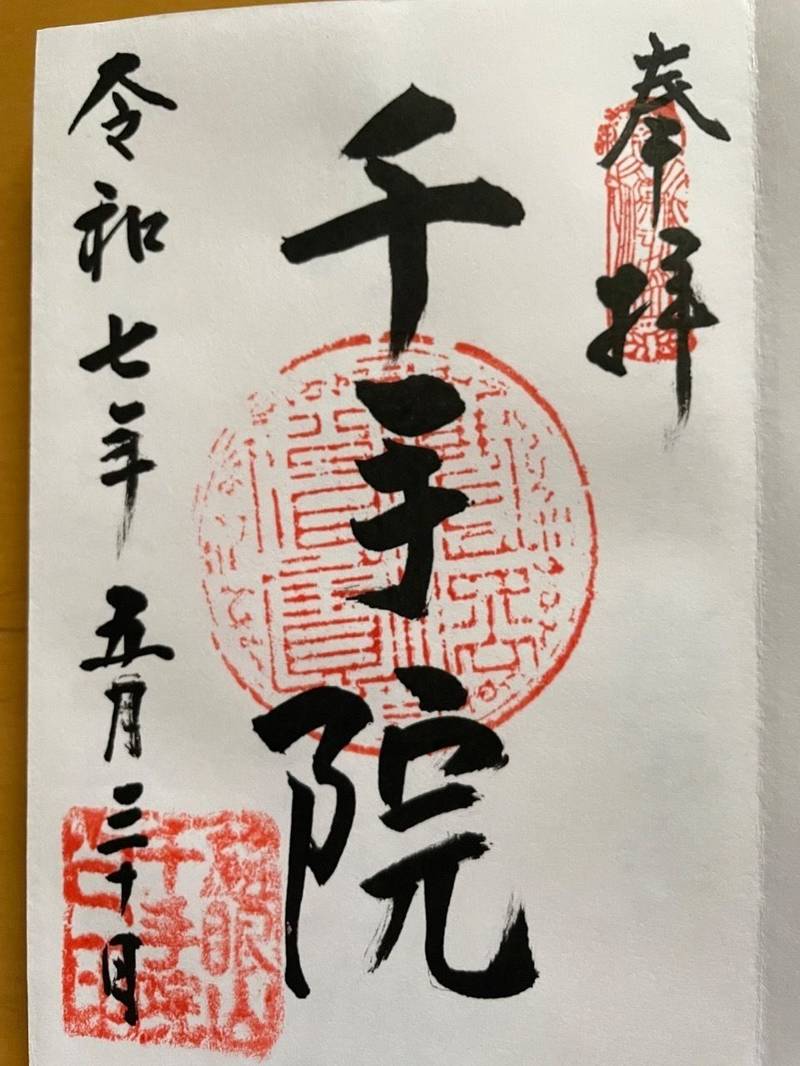 奉拝
千手院
令和七年五月三十日
眼山
千手院